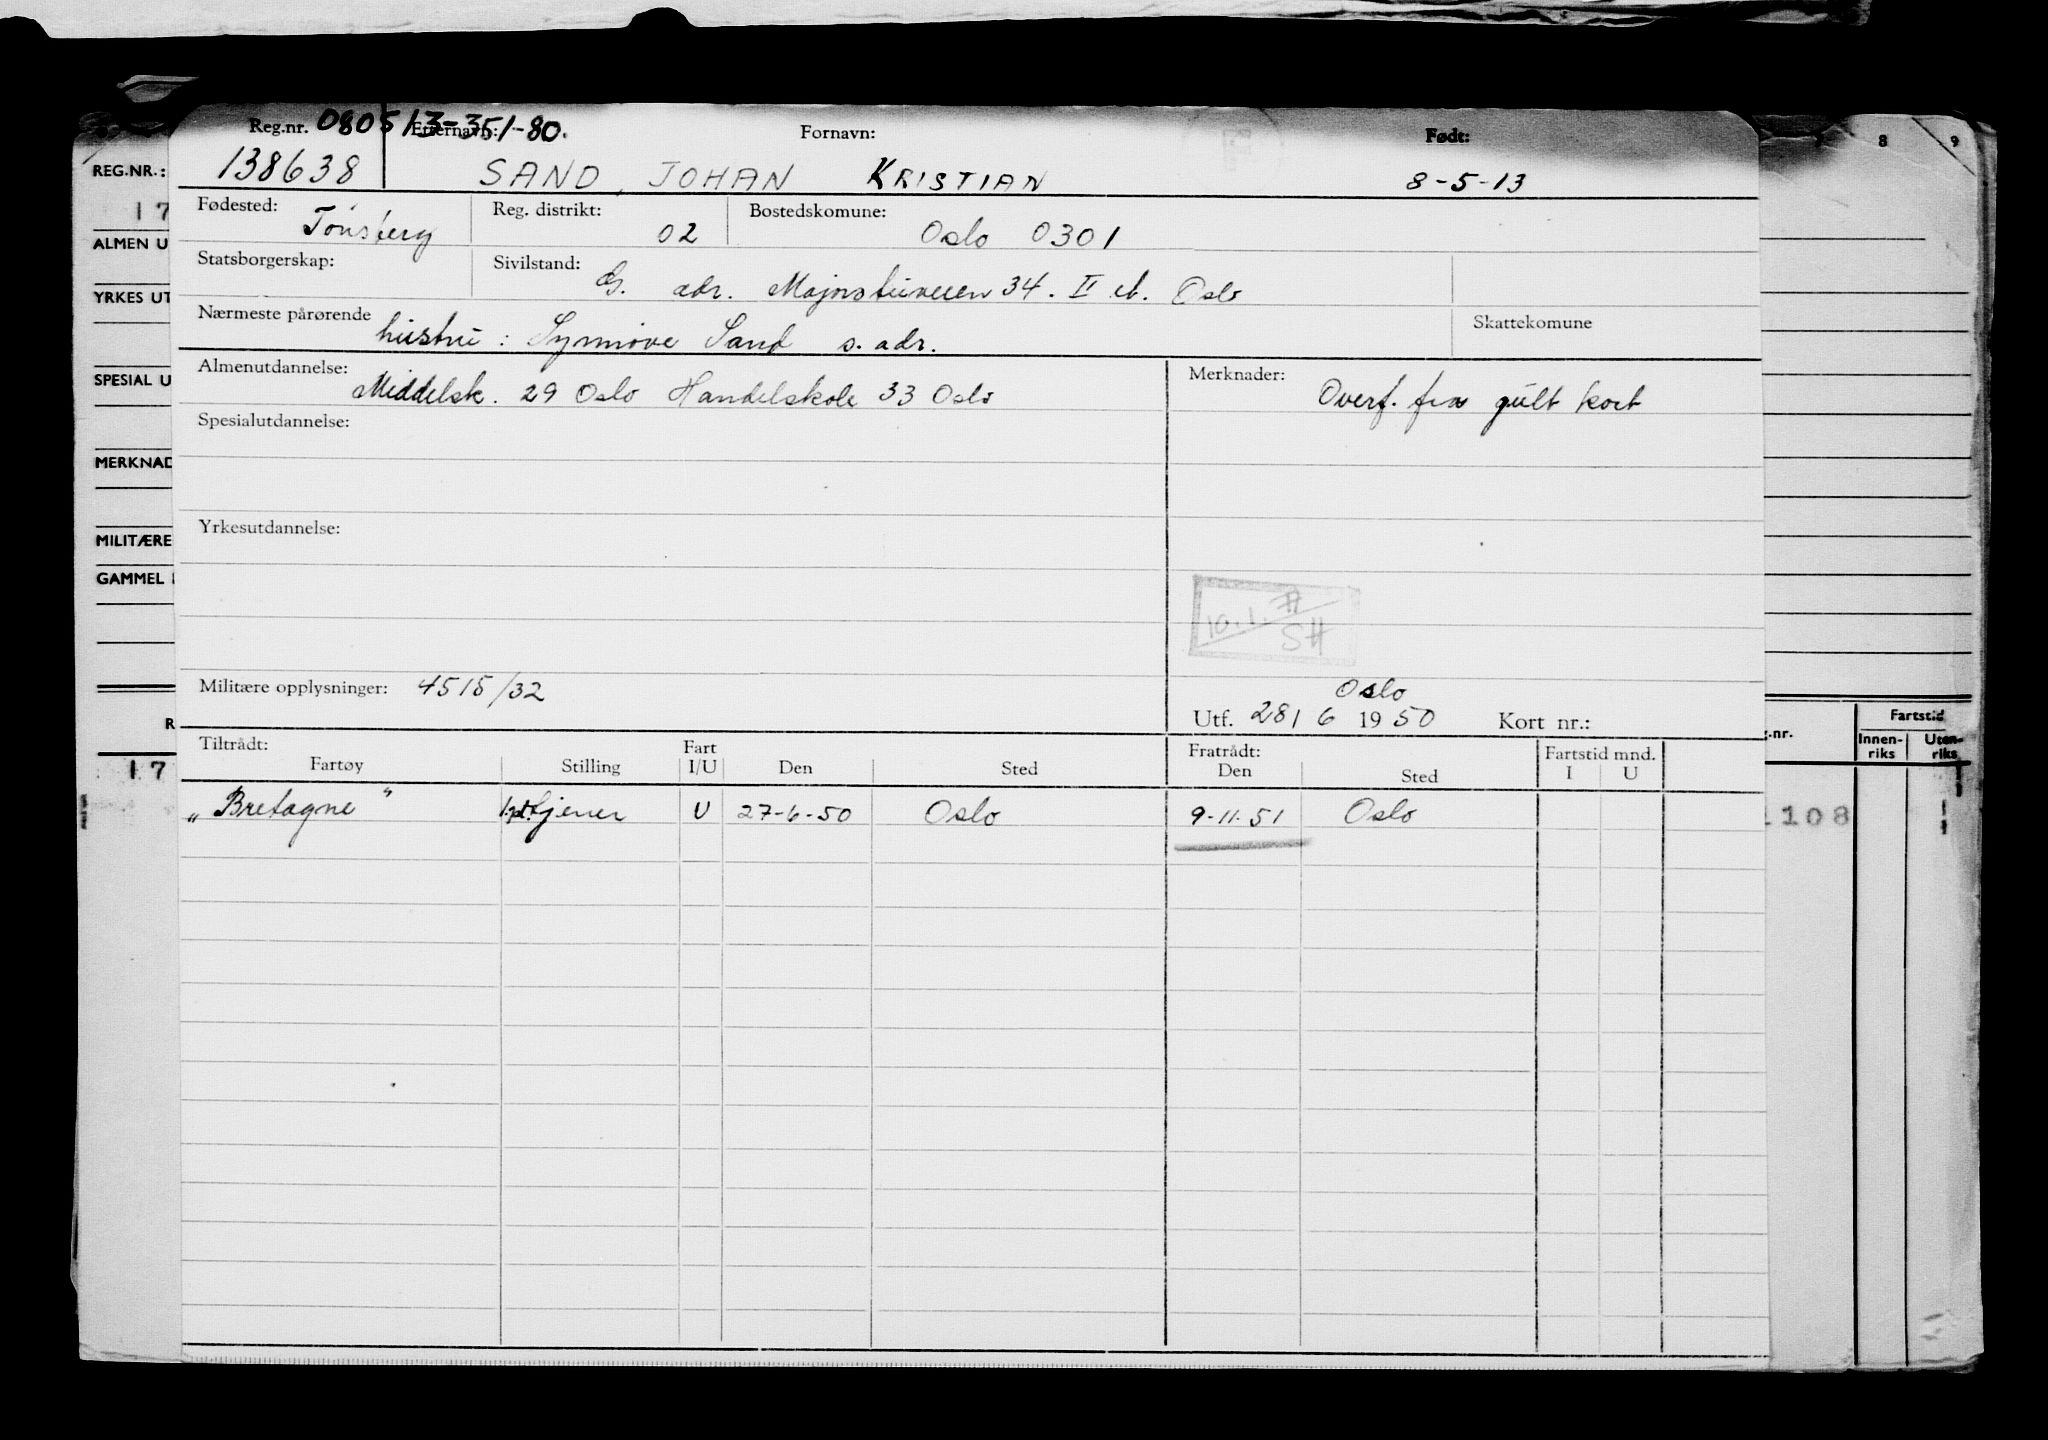 Reg.nr. 080513-351-80. Etternavn: Fornavn: Født:
138638 SAND, JOHAN KRISTIAN 8-5-13
Fødested: Tønsberg Reg. distrikt: 02 Bostedskomune: Oslo 0301
Statsborgerskap: Sivilstand: G. adr. Majorstuveien 34. II et. Oslo
Nærmeste pårørende hustru: Synnøve Sand s. adr. Skattekomune
Almenutdannelse: Middelsk. 29 Oslo Handelskole 33 Oslo Merknader: Overf. fra gult kort
Spesialutdannelse:
Yrkesutdannelse:
10.1. SH
Militære opplysninger: 4515/32 Oslo
Utf. 28/6 1950 Kort nr.:
Tiltrådt: Fratrådt: Fartstid mnd.
Fartøy Stilling Fart I/U Den Sted Den Sted I U
"Bretagne" tjener U 27-6-50 Oslo 9-11-51 Oslo
8 9
REG.NR.:
17
ALMEN U
YRKES UT
SPESIAL U
MERKNAD
MILITÆRE
GAMMEL
R
17
g.nr. Fartstid
Innen-riks Uten-riks
1108